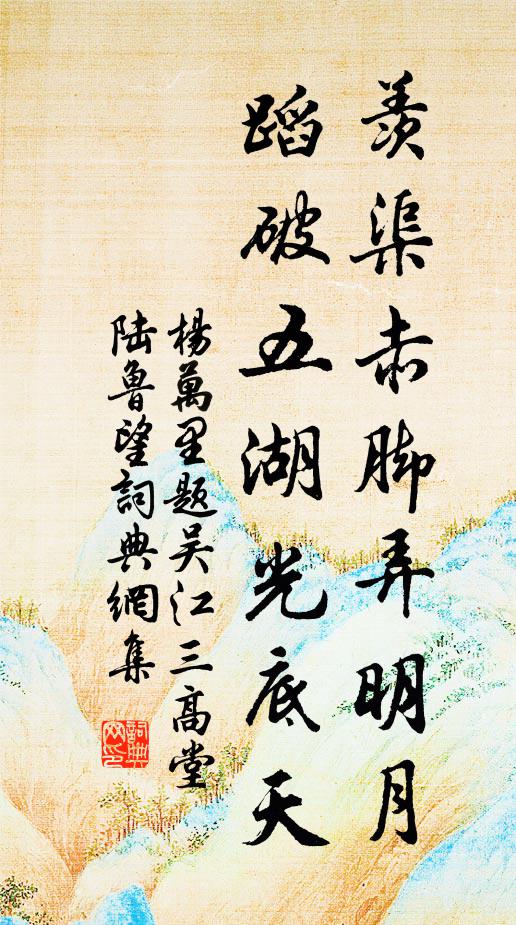 羨渠赤腳弄明月
蹈破五湖光底天
楊萬里題吳江三高堂
陸魯望詞典網集
詞典網印